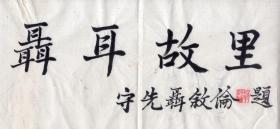 聶耳故里
守先聶敘倫題